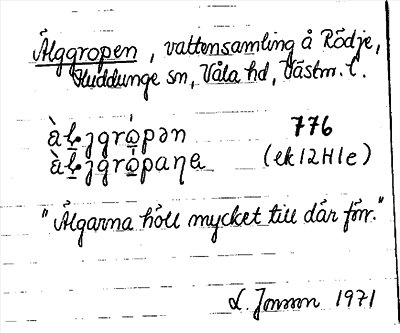 Älggropen, vattensamling å Rödje,
Huddunge sn, Våla hd, Västm. l.
776
(ek 12H1e)
"Älgarna höll mycket till där förr."
L. Jonson 1971